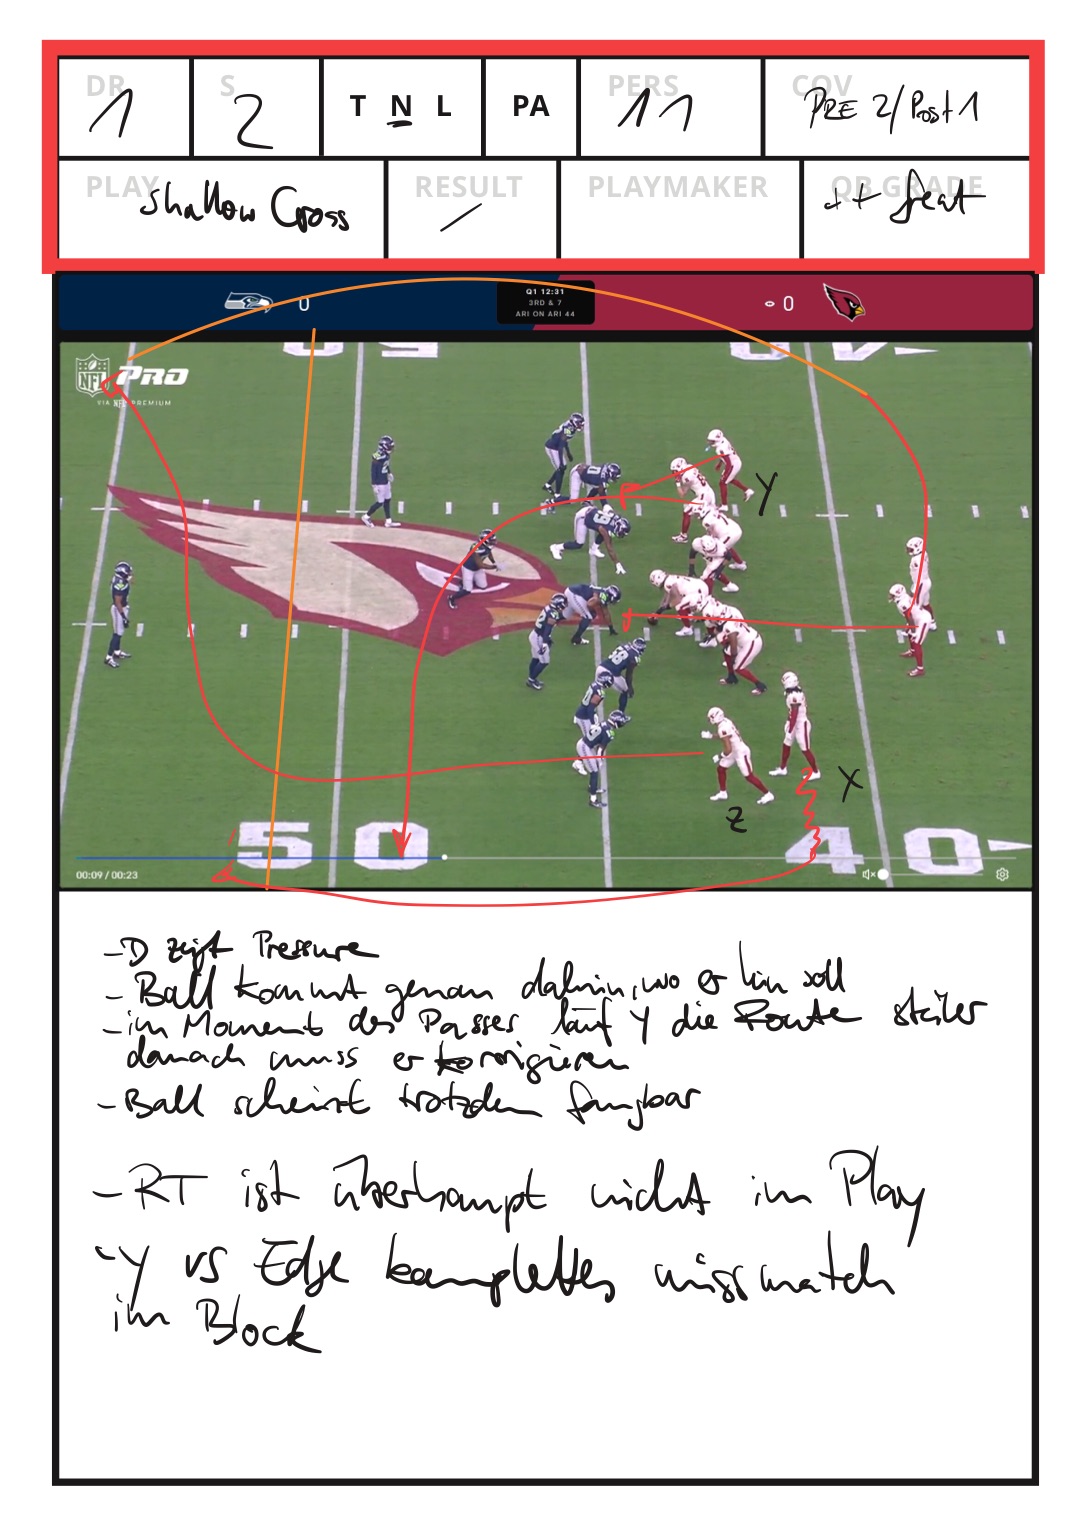 DR 1
S 2
T N L
PA
PERS 11
COV PRE 2/Post 1
PLAY Shallow Cross
RESULT /
PLAYMAKER
QB GRADE ++ Great
0
Q1 12:31
3RD & 7
ARI ON ARI 44
0
NFL PRO
VIA NFL PREMIUM
Y
X
Z
5 0
4 0
00:09 / 00:23
- D zeigt Pressure
- Ball kommt genau dahin, wo er hin soll
- im Moment des Passes läuf Y die Route steiler
danach muss er korrigieren
- Ball scheint trotzdem fangbar
- RT ist überhaupt nicht im Play
- Y vs Edge komplettes missmatch
im Block